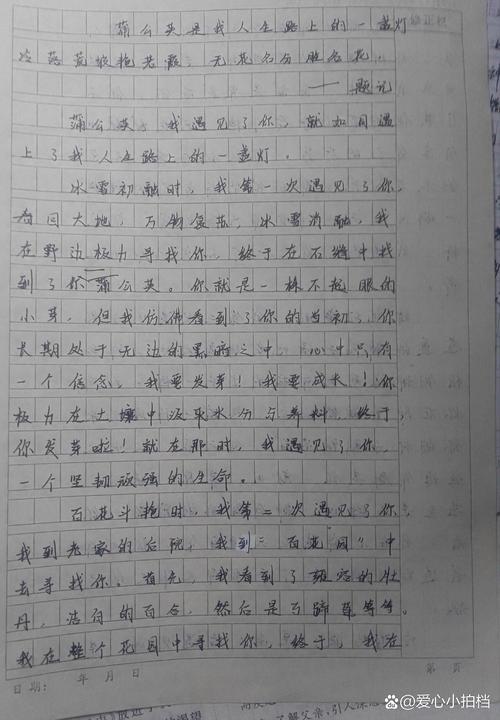 蒲公英是我人生路上的一盏灯
冷落荒坡艳若霞，无花名分胜名花。
——题记
蒲公英，我遇见了你，就如同遇
上了我人生路上的一盏灯。
冰雪初融时，我第一次遇见了你，
春回大地，万物复苏，冰雪消融，我
在野边极力寻找你，终于在石缝中找
到了你——蒲公英。你就是一株不起眼的
小芽，但我仿佛看到了你的当初，你
长期处于无边的黑暗之中，心中只有
一个信念，我要发芽！我要成长！你
极力在土壤中汲取水分与养料，终于，
你发芽啦！就在那时，我遇见了你，
一个坚韧顽强的生命。
百花斗艳时，我第二次遇见了你，
我到老家的后院，我到“百花园”中
去寻找你。首先，我看到了雍容的牡
丹，洁白的百合，然后是马蹄草等等。
我在整个花园中寻找你，终于，我在
日期： 年 月 日
第 页
了解父亲，引人深思
@爱心小拍档